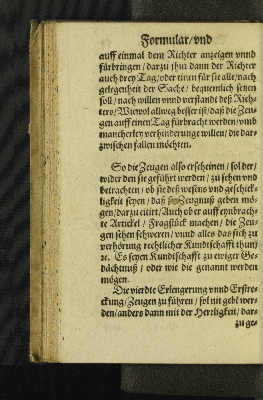 Formular/vnd
auff einmal dem Richter anzeigen vnnd
fürbringen/darzu jhm dann der Richter
auch drey Tag/oder einen für sie alle/nach
gelegenheit der Sache/bequemlich setzen
soll/nach willen vnnd verstandt deß Rich-
ters/Wiewol allweg besser ist/daß die Zeu-
gen auff einen Tag fürbracht werden/vmb
mancherley verhinderunge willen/die dar-
zwischen fallen möchten.
So die Zeugen also erscheinen/sol der/
wider den sie geführt werden/zu sehen vnd
betrachten/ob sie deß wesens vnd geschick-
ligkeit seyen/daß sie Zeugnuß geben mö-
gen/darzu citirt/Auch ober auff eynbrach-
te Artickel/Fragstück machen/die Zeu-
gen sehen schweren/vnnd alles das sich zu
verhörung rechtlicher Kundtschafft thun/
ꝛc. Es seyen Kundtschafft zu ewiger Ge-
dächtnuß/oder wie die genannt werden
mögen.
Die vierdte Erlengerung vnnd Erstre-
ckung/Zeugen zu führen/sol nit gebt wer-
den/anders dann mit der Herrligkeit/dar-
zu ge-